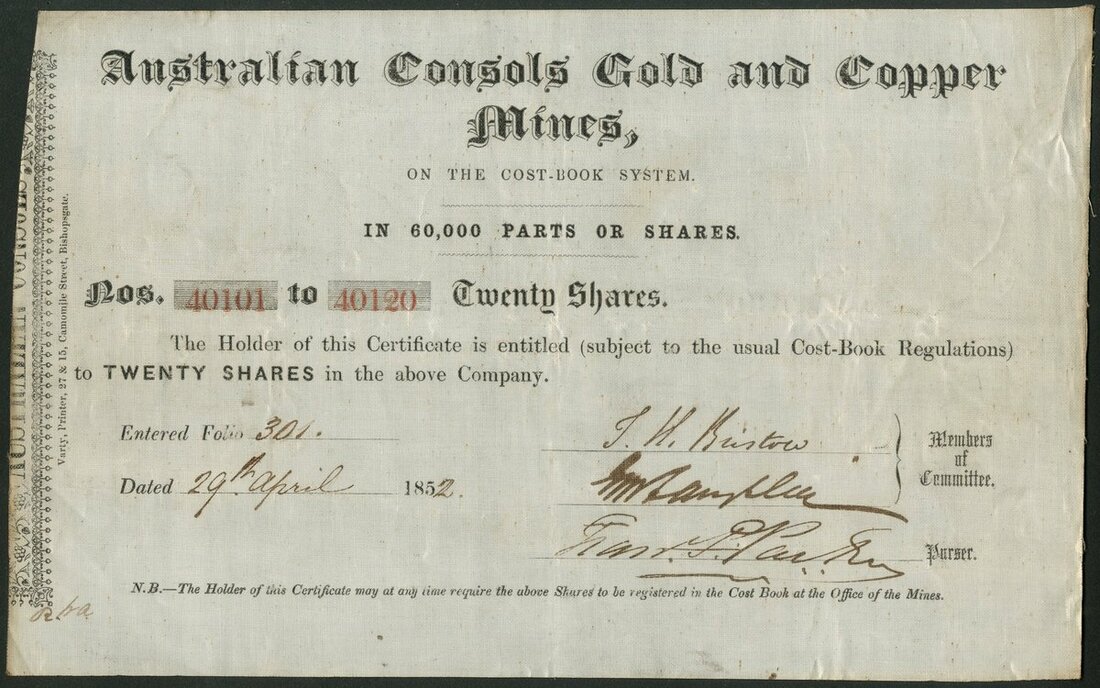 Australian Consols Gold and Copper
Mines,
ON THE COST-BOOK SYSTEM.
IN 60,000 PARTS OR SHARES.
Nos. 40101 to 40120 Twenty Shares.
The Holder of this Certificate is entitled (subject to the usual Cost-Book Regulations)
to TWENTY SHARES in the above Company.
Entered Folio 301.
Dated 29th April 1852.
Members
of
Committee.
Purser.
N.B.—The Holder of this Certificate may at any time require the above Shares to be registered in the Cost Book at the Office of the Mines.
Varty, Printer, 27 & 15, Camomile Street, Bishopsgate.
AUSTRALIAN CONSOLS